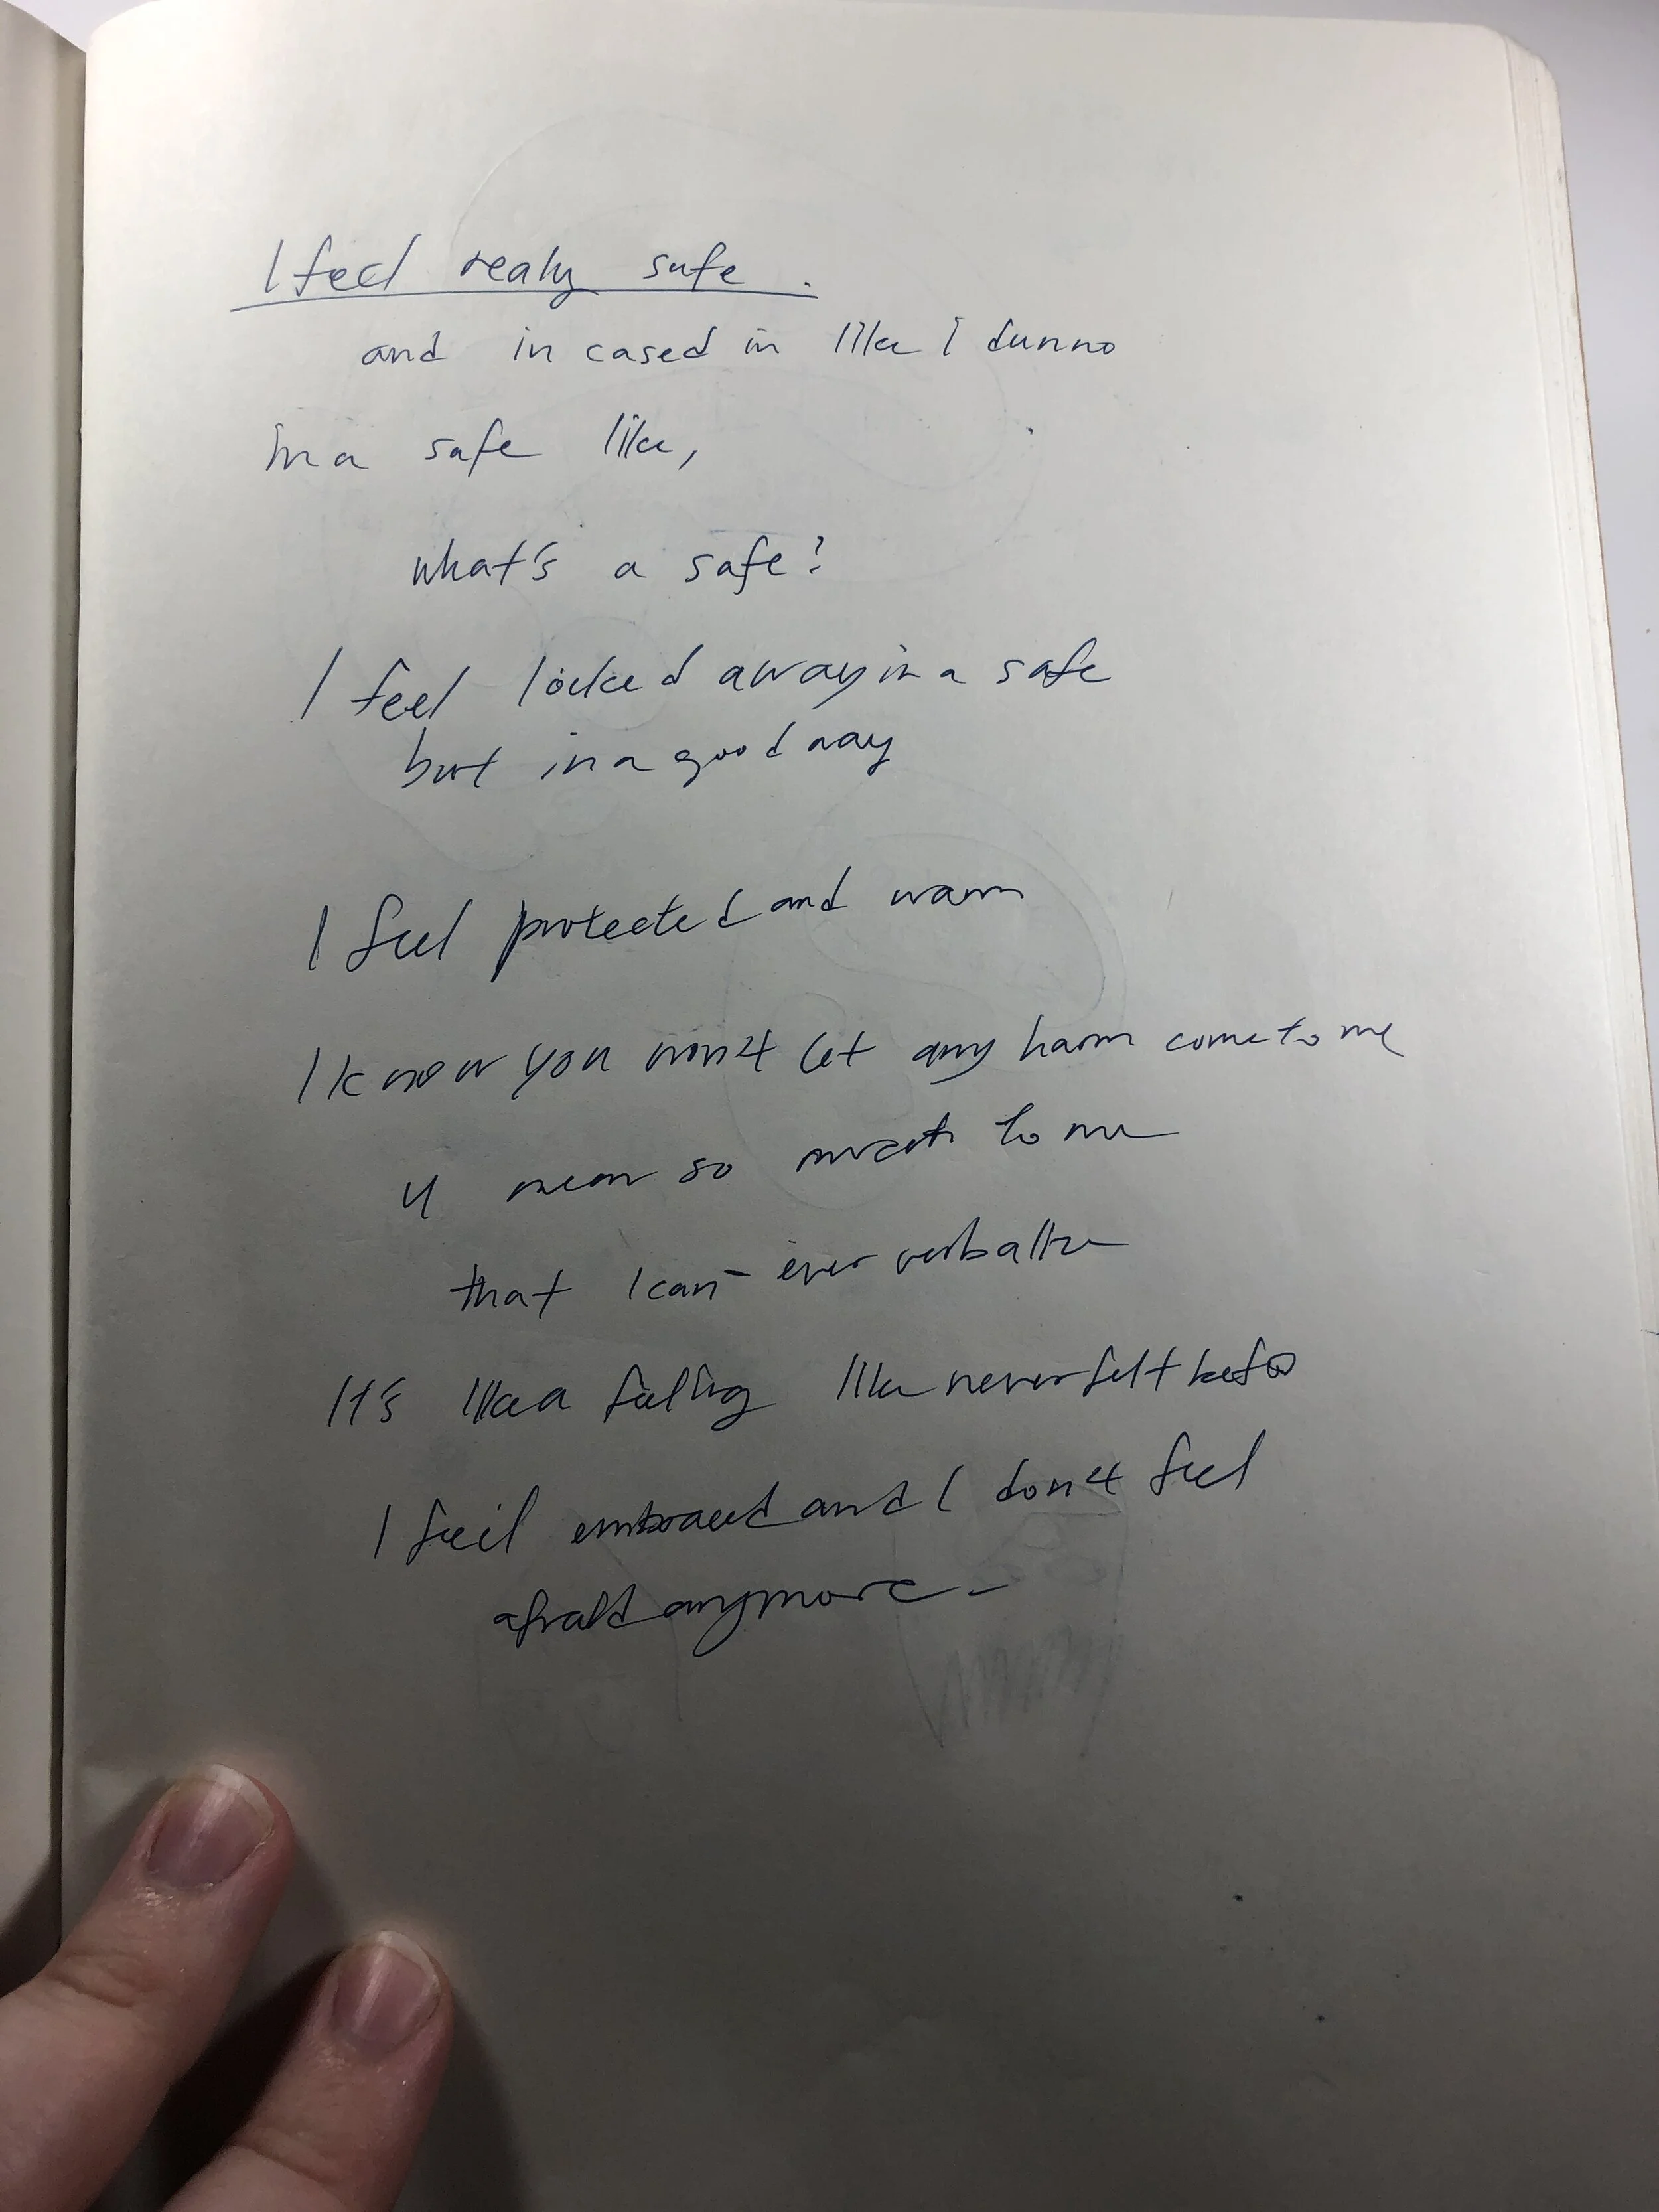 I feel realy safe.
and in cased in like I dunno
in a safe like,
what's a safe?
I feel locked away in a safe
but in a good way
I feel protected and warm
I know you won't let any harm come to me
u mean so much to me
that I can ever verbalize
It's like a feeling like never felt before
I feel embraced and I don't feel
afraid anymore -